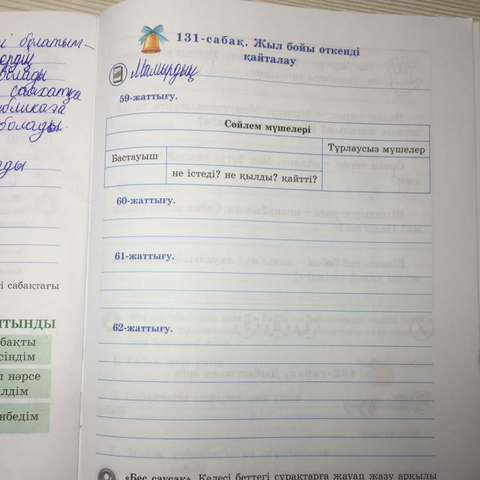 і болатын-
болады
болады.
і сабақтағы
ТЫНДЫ
бақты
сіндім
ы нәрсе
лдім
нбедім
131-сабақ. Жыл бойы өткенді
қайталау
Мамырдың
59-жаттығу.
Сөйлем мүшелері
Бастауыш
Тұрлаусыз мүшелер
не істеді? не қылды? қайтті?
60-жаттығу.
61-жаттығу.
62-жаттығу.
«Бес саусақ». Келесі беттегі сұрақтарға жауап жазу арқылы